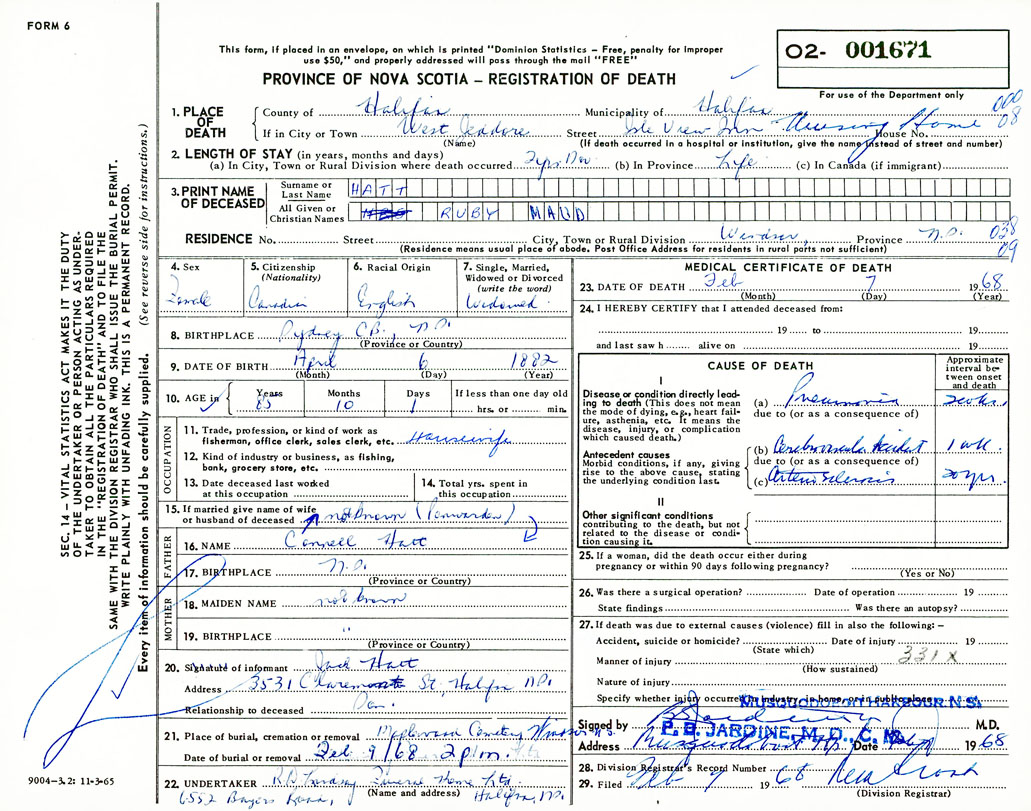 FORM 6
This form, if placed in an envelope, on which is printed "Dominion Statistics – Free, penalty for improper
use $50," and properly addressed will pass through the mail "FREE"
PROVINCE OF NOVA SCOTIA – REGISTRATION OF DEATH
O2- 001671
For use of the Department only
SEC. 14 – VITAL STATISTICS ACT MAKES IT THE DUTY
OF THE UNDERTAKER OR PERSON ACTING AS UNDER-
TAKER TO OBTAIN ALL THE PARTICULARS REQUIRED
IN THE "REGISTRATION OF DEATH" AND TO FILE THE
SAME WITH THE DIVISION REGISTRAR WHO SHALL ISSUE THE BURIAL PERMIT.
WRITE PLAINLY WITH UNFADING INK. THIS IS A PERMANENT RECORD.
Every item of information should be carefully supplied. (See reverse side for instructions.)
1. PLACE OF DEATH
County of Halifax Municipality of Halifax 000
If in City or Town West Street Isle View Inn Nursing Home House No. 08
(Name) (If death occurred in a hospital or institution, give the name instead of street and number)
2. LENGTH OF STAY (in years, months and days)
(a) In City, Town or Rural Division where death occurred (b) In Province Life (c) In Canada (if immigrant)
3. PRINT NAME OF DECEASED
Surname or Last Name HATT
All Given or Christian Names RUBY MAUD
RESIDENCE No. Street City, Town or Rural Division Windsor, Province N.S. 038
(Residence means usual place of abode. Post Office Address for residents in rural parts not sufficient) 09
4. Sex Female
5. Citizenship (Nationality) Canadian
6. Racial Origin English
7. Single, Married, Widowed or Divorced (write the word) Widowed
8. BIRTHPLACE Sydney C.B., N.S.
(Province or Country)
9. DATE OF BIRTH April 6 1882
(Month) (Day) (Year)
10. AGE in Years 85 Months 10 Days 1 If less than one day old hrs. or min.
OCCUPATION
11. Trade, profession, or kind of work as fisherman, office clerk, sales clerk, etc. Housewife
12. Kind of industry or business, as fishing, bank, grocery store, etc.
13. Date deceased last worked at this occupation
14. Total yrs. spent in this occupation
15. If married give name of wife or husband of deceased not known
FATHER
16. NAME Connell Hatt
17. BIRTHPLACE N.S.
(Province or Country)
MOTHER
18. MAIDEN NAME not known
19. BIRTHPLACE "
(Province or Country)
20. Signature of informant Jack Hatt
Address 3531 Claremont St. Halifax N.S.
Relationship to deceased Son
21. Place of burial, cremation or removal Maplewood Cemetery Windsor N.S.
Date of burial or removal Feb 9/68 2 p.m.
22. UNDERTAKER Funeral Home Ltd.
(Name and address)
6552 Bayers Road, Halifax, N.S.
9004–3.2: 11-3-65
MEDICAL CERTIFICATE OF DEATH
23. DATE OF DEATH Feb 7 1968
(Month) (Day) (Year)
24. I HEREBY CERTIFY that I attended deceased from:
19 to 19
and last saw h alive on 19
CAUSE OF DEATH
Approximate interval between onset and death
I
Disease or condition directly lead-
ing to death (This does not mean
the mode of dying, e.g., heart fail-
ure, asthenia, etc. It means the
disease, injury, or complication
which caused death.)
(a) Pneumonia
due to (or as a consequence of)
Antecedent causes
Morbid conditions, if any, giving
rise to the above cause, stating
the underlying condition last.
(b) Cerebrovascular Accident 1 wk.
due to (or as a consequence of)
(c) Arteriosclerosis 20 yrs.
II
Other significant conditions
contributing to the death, but not
related to the disease or condi-
tion causing it.
25. If a woman, did the death occur either during
pregnancy or within 90 days following pregnancy?
(Yes or No)
26. Was there a surgical operation? Date of operation 19
State findings Was there an autopsy?
27. If death was due to external causes (violence) fill in also the following: –
Accident, suicide or homicide? Date of injury 19
(State which)
Manner of injury 331 X
(How sustained)
Nature of injury
Specify whether injury occurred in industry, in home, or in public place
MUSQUODOBOIT HARBOUR N.S.
Signed by M.D.
P. B. JARDINE, M. D., C. M.
Address Date 1968
28. Division Registrar's Record Number
29. Filed Feb 9 1968
(Division Registrar)